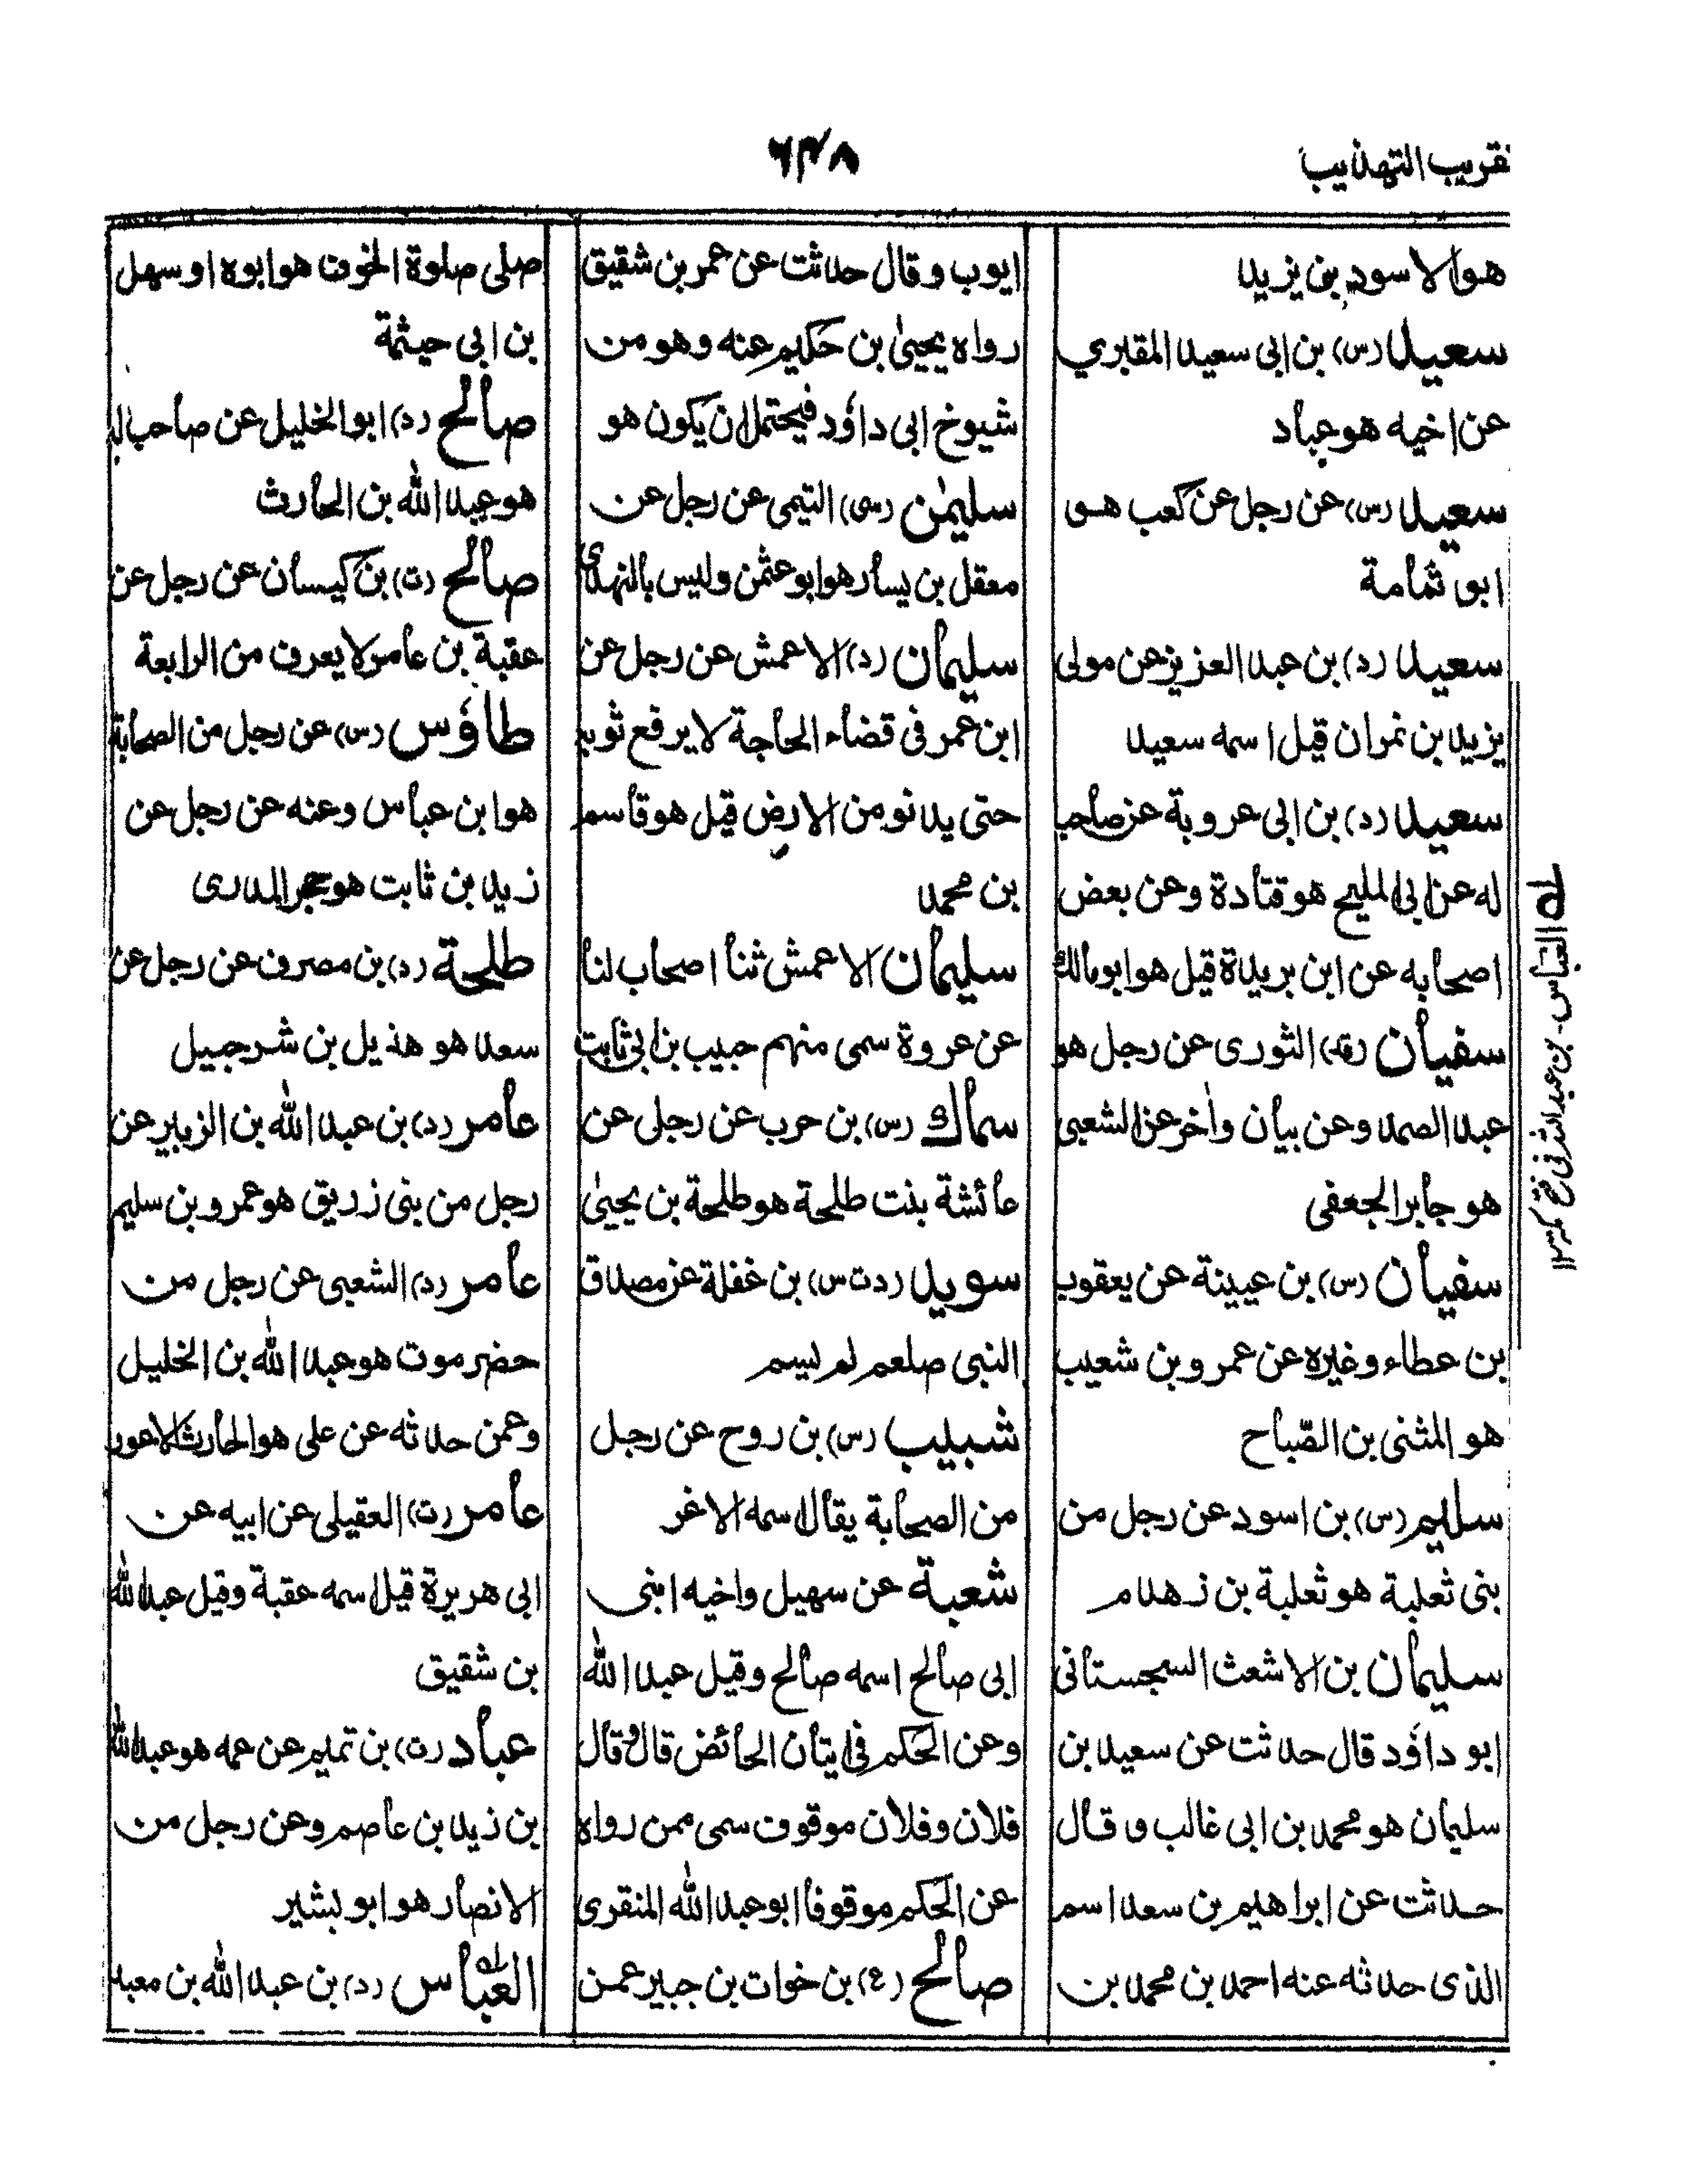 تقريب التهذيب
٦٣٨
هو الاسود بن يزيد
سعيد (س) بن ابى سعيد المقبري
عن اخيه هو عباد
سعيد (س) عن رجل عن كعب هو
ابو ثمامة
سعيد (د) بن عبد العزيز عن مولى
يزيد بن نمران قيل اسمه سعيد
سعيد (د) بن ابى عروبة عن صاحب
له عن ابى المليح هو قتادة وعن بعض
اصحابه عن ابن بريدة قيل هو ابو مالك
سفيان (قد) الثورى عن رجل هو
عبد الصمد وعن بيان وأخر عن الشعبى
هو جابر الجعفى
سفيان (س) بن عيينة عن يعقوب
بن عطاء وغيره عن عمرو بن شعيب
هو المثنى بن الصّباح
سليم (س) بن اسود عن رجل من
بنى ثعلبة هو ثعلبة بن زهدم
سليمان بن الاشعث السجستانى
ابو داؤد قال حدثت عن سعيد بن
سليمان هو محمد بن ابى غالب و قال
حدثت عن ابراهيم بن سعد اسم
الذى حدثه عنه احمد بن محمد بن
ايوب وقال حدثت عن عمر بن شقيق
رواه يحيىٰ بن حكيم عنه وهو من
شيوخ ابى داؤد فيحتمل ان يكون هو
سليمٰن (سى) التيمى عن رجل عن
معقل بن يسار هو ابو عثمن وليس بالنهدى
سليمان (د) الاعمش عن رجل عن
ابن عمر فى قضاء الحاجة لا يرفع ثوبه
حتى يدنو من الارض قيل هو قاسم
بن محمد
سليمان الاعمش ثنا اصحاب لنا
عن عروة سمى منهم حبيب بن ابى ثابت
سماك (س) بن حرب عن رجل عن
عائشة بنت طلحة هو طلحة بن يحيىٰ
سويد (د ت س) بن غفلة عن مصدق
النبى صلعم لم يسم
شبيب (س) بن روح عن رجل
من الصحابة يقال اسمه الاغر
شعبة عن سهيل واخيه ابنى
ابى صالح اسمه صالح وقيل عبد الله
وعن الحكم فى اتيان الحائض قال وقال
فلان وفلان موقوف سمى ممن رواه
عن الحكم موقوفا ابو عبد الله المنقرى
صالح (ع) بن خوات بن جبير عمن
صلى صلوة الخوف هو ابوه او سهل
بن ابى حيثمة
صالح (د) ابو الخليل عن صاحب له
هو عبد الله بن الحارث
صالح (ت) بن كيسان عن رجل عن
عقبة بن عامر لا يعرف من الرابعة
طاؤس (س) عن رجل من الصحابة
هو ابن عباس وعنه عن رجل عن
زيد بن ثابت هو حجر المدرى
طلحة (د) بن مصرف عن رجل عن
سعد هو هذيل بن شرحبيل
عامر (د) بن عبد الله بن الزبير عن
رجل من بنى زريق هو عمرو بن سليم
عامر (د) الشعبى عن رجل من
حضرموت هو عبد الله بن الخليل
وعمن حدثه عن على هو الحارث الاعور
عامر (ت) العقيلى عن ابيه عن
ابى هريرة قيل اسمه عقبة وقيل عبد الله
بن شقيق
عباد (ت) بن تميم عن عمه هو عبد الله
بن زيد بن عاصم وعن رجل من
الانصار هو ابو بشير
العبّاس (د) بن عبد الله بن معبد
له العبّاس - بن عبد الله فى فتح مكة ١٢